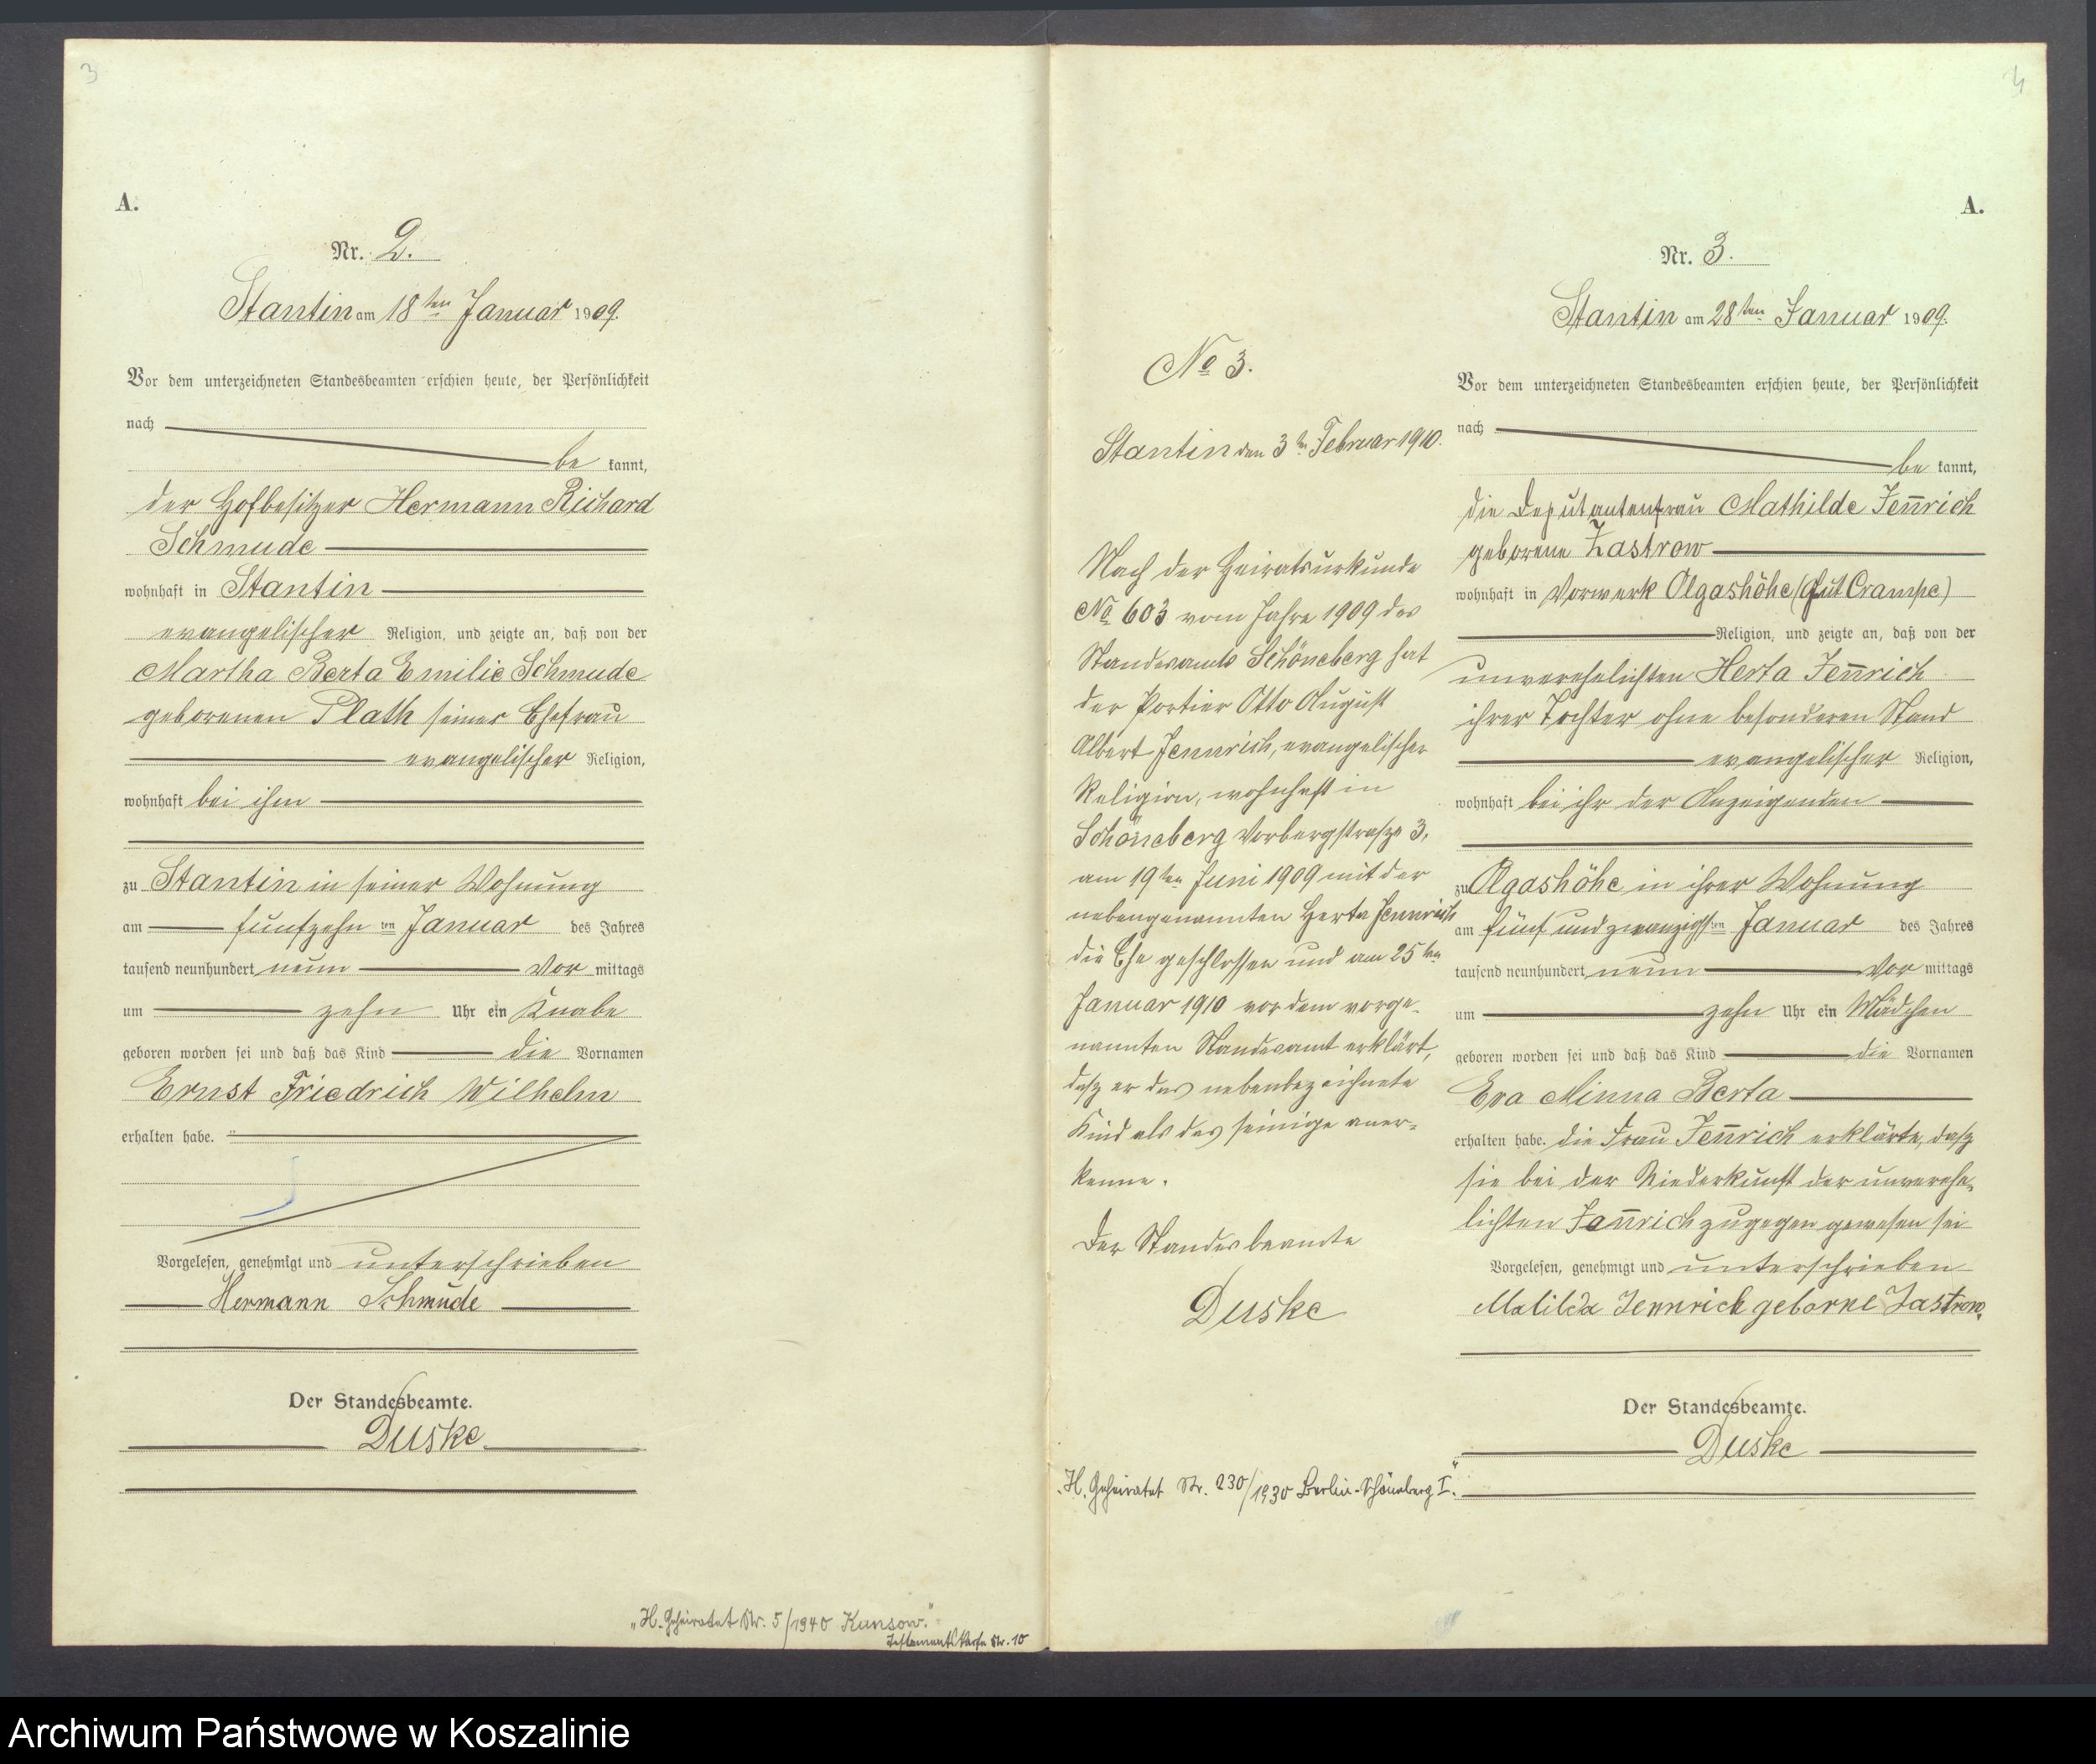 3
A.
Nr. 2.
Stantin am 18ten Januar 1909.
Vor dem unterzeichneten Standesbeamten erschien heute, der Persönlichkeit
nach
be kannt,
der Hofbesitzer Hermann Richard
Schmude
wohnhaft in Stantin
evangelischer Religion, und zeigte an, daß von der
Martha Berta Emilie Schmude
geborenen Plath seiner Ehefrau
evangelischer Religion,
wohnhaft bei ihm
zu Stantin in seiner Wohnung
am fünfzehn ten Januar des Jahres
tausend neunhundert neun Vor mittags
um zehn Uhr ein Knabe
geboren worden sei und daß das Kind die Vornamen
Ernst Friedrich Wilhelm
erhalten habe.
Vorgelesen, genehmigt und unterschrieben
Hermann Schmude
Der Standesbeamte.
Duske
„H. Geheiratet Nr. 5/1940 Kunsow."
Testamentskartei Nr. 10
4
No 3.
Stantin den 3ten Februar 1910.
Nach der Heiratsurkunde
No 603 vom Jahre 1909 des
Standesamts Schöneberg hat
der Portier Otto August
Albert Jennrich, evangelischer
Religion, wohnhaft in
Schöneberg Vorbergstrasze 3,
am 19ten Juni 1909 mit der
nebengenannten Herta Jennrich
die Ehe geschlossen und am 25ten
Januar 1910 vor dem vorge-
nannten Standesamt erklärt,
dasz er das nebenbezeichnete
Kind als das seinige aner-
kenne.
Der Standesbeamte
Duske
„H. Geheiratet Nr. 230/1930 Berlin-Schöneberg I."
A.
Nr. 3.
Stantin am 28ten Januar 1909.
Vor dem unterzeichneten Standesbeamten erschien heute, der Persönlichkeit
nach
be kannt,
die Deputantenfrau Mathilde Jen̅rich
geborene Zastrow
wohnhaft in Vorwerk Olgashöhe (Gut Crampe)
Religion, und zeigte an, daß von der
unverehelichten Herta Jen̅rich
ihrer Tochter ohne besonderen Stand
evangelischer Religion,
wohnhaft bei ihr der Anzeigenden
zu Olgashöhe in ihrer Wohnung
am fünf und zwanzigsten Januar des Jahres
tausend neunhundert neun Vor mittags
um zehn Uhr ein Mädchen
geboren worden sei und daß das Kind die Vornamen
Eva Minna Berta
erhalten habe. Die Frau Jen̅rich erklärte, dasz
sie bei der Niederkunft der unverehe-
lichten Jen̅rich zugegen gewesen sei
Vorgelesen, genehmigt und unterschrieben
Matilda Jennrich geborne Zastrow.
Der Standesbeamte.
Duske
Archiwum Państwowe w Koszalinie